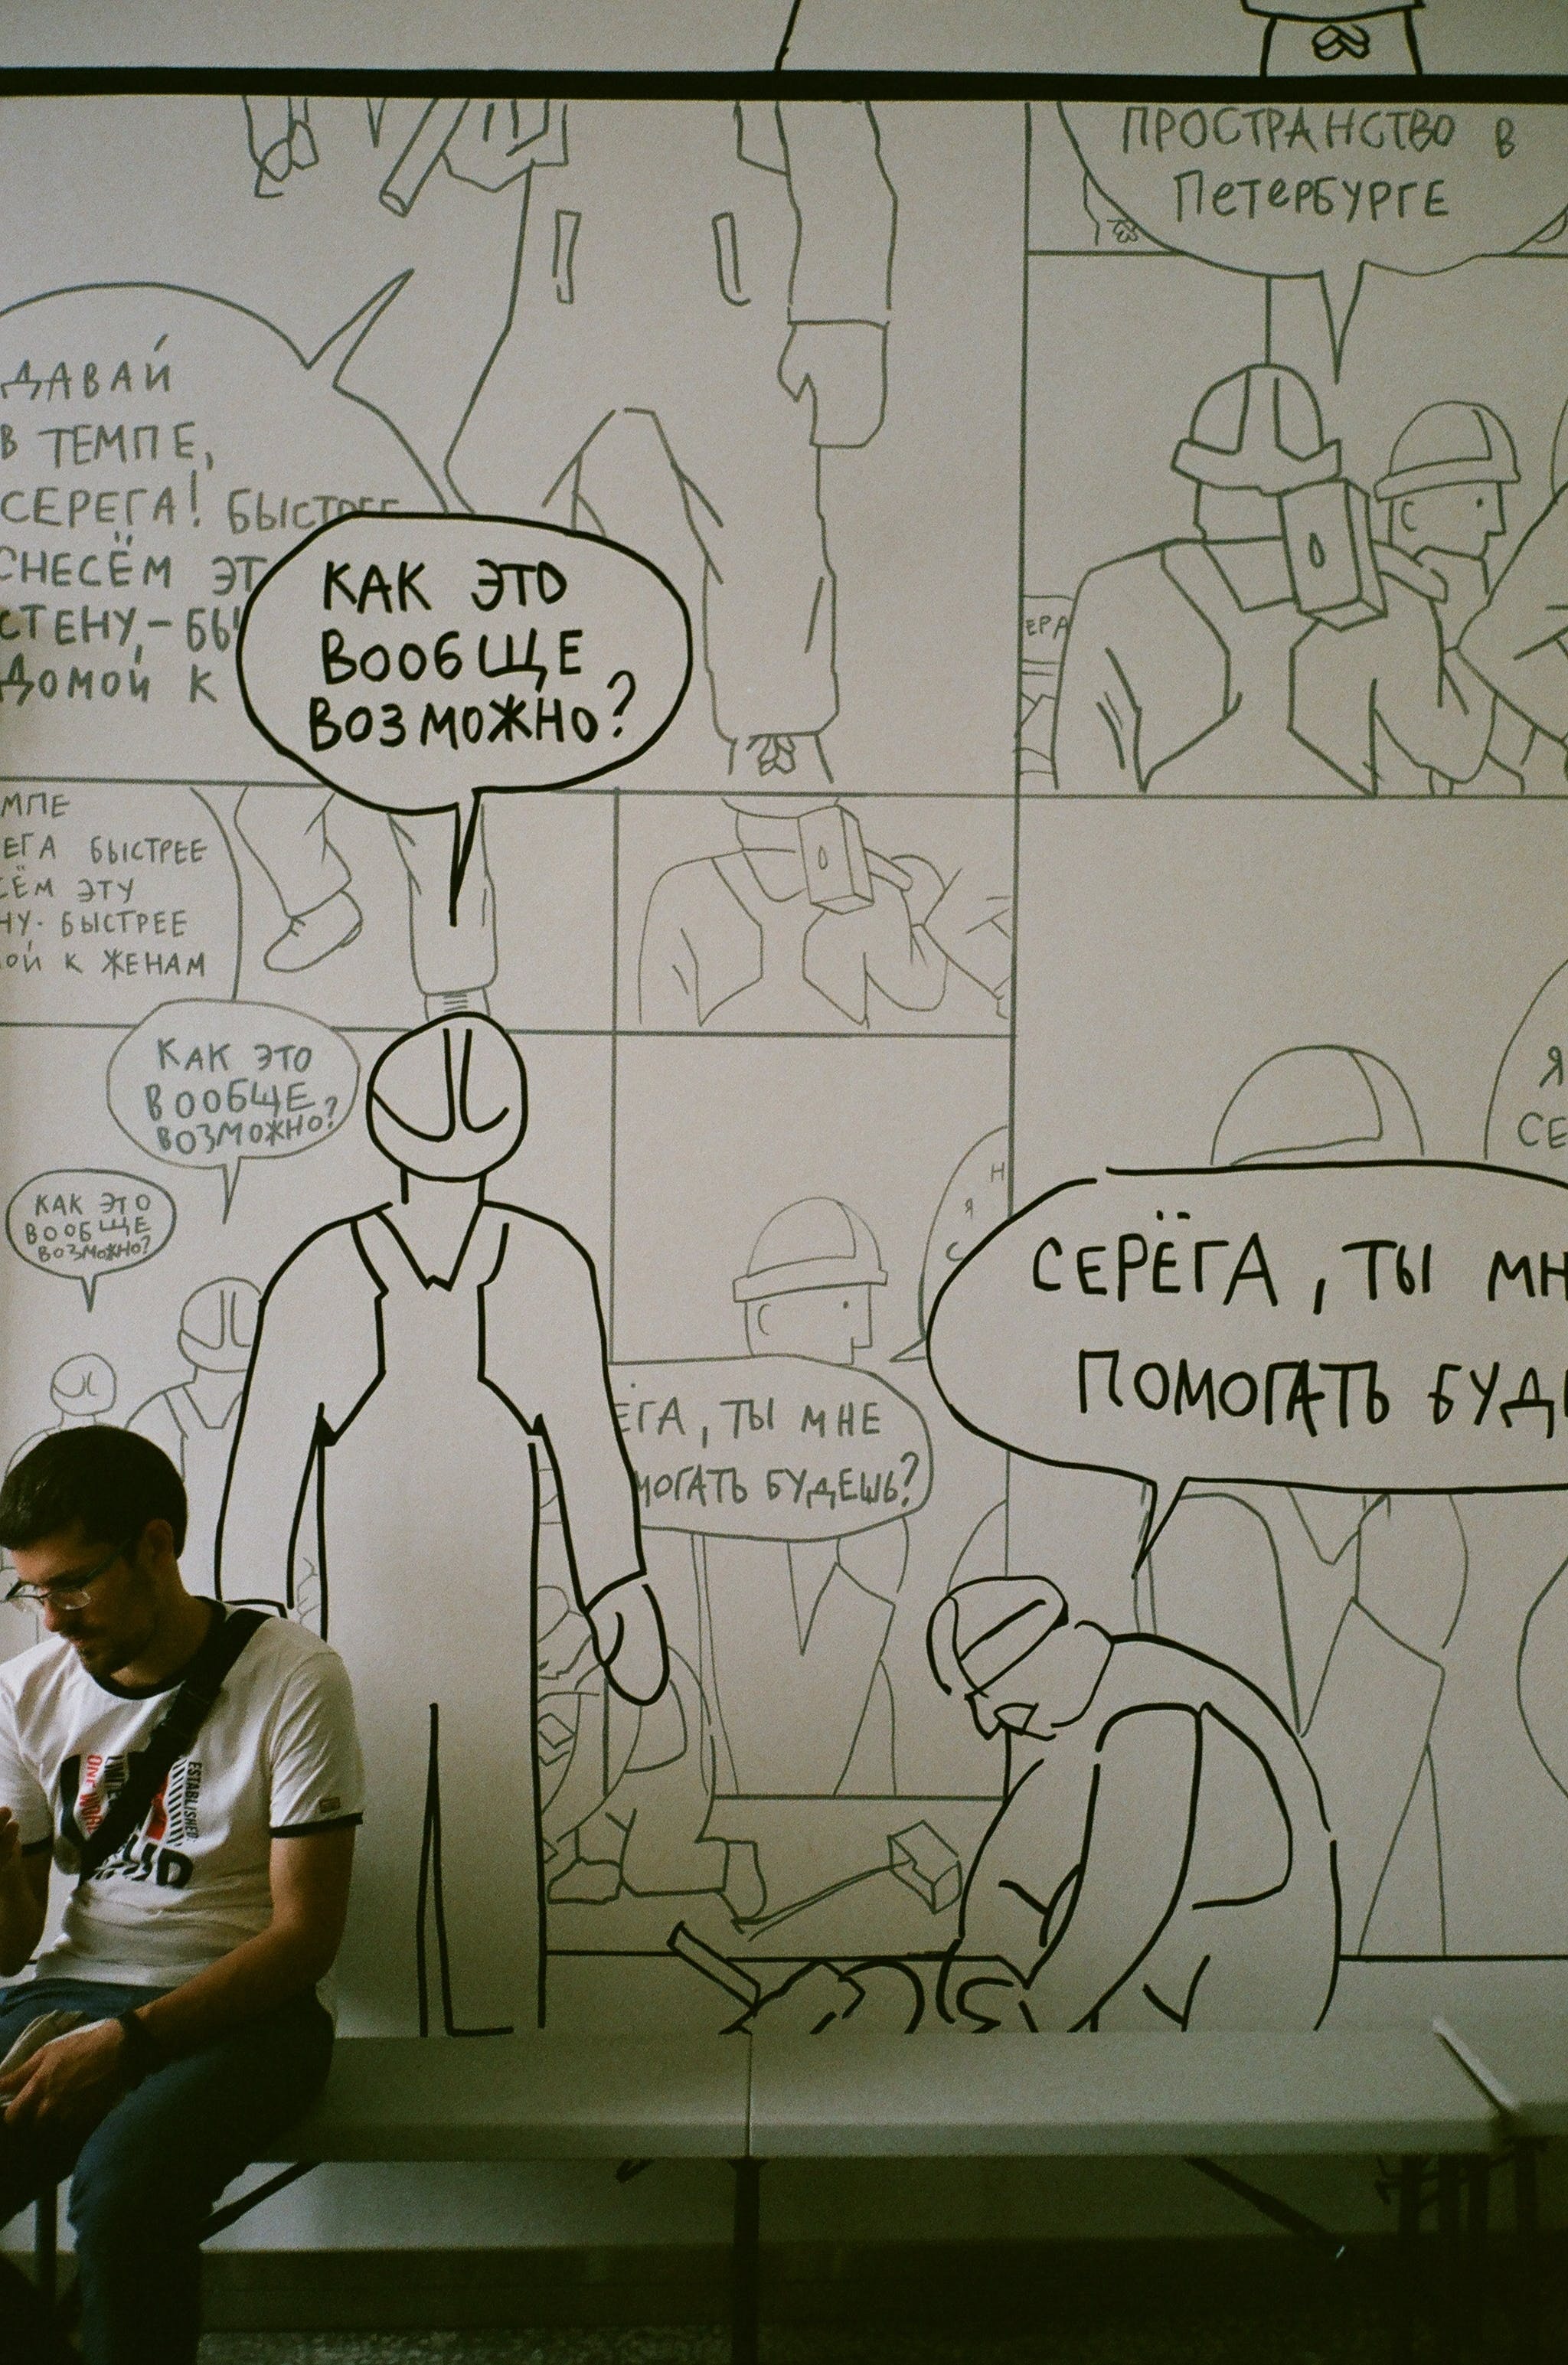 ПРОСТРАНСТВО В
ПЕТЕРБУРГЕ
ДАВАЙ
В ТЕМПЕ,
СЕРЕГА!
СНЕСЁМ
СТЕНУ,-
ДОМОЙ К
КАК ЭТО
ВООБЩЕ
ВОЗМОЖНО?
ЕРА
МПЕ
ЕГА БЫСТРЕЕ
СЁМ ЭТУ
НУ- БЫСТРЕЕ
ОЙ К ЖЕНАМ
КАК ЭТО
ВООБЩЕ
ВОЗМОЖНО?
КАК ЭТО
ВООБЩЕ
ВОЗМОЖНО?
Я
СЕ
Н
Я
С
СЕРЁГА, ТЫ МН
ПОМОГАТЬ БУД
ЕГА, ТЫ МНЕ
МОГАТЬ БУДЕШЬ?
ESTABLISHED